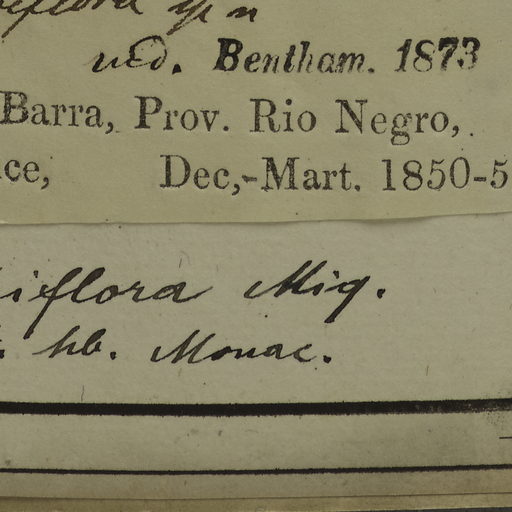 iflora sp n
ved. Bentham. 1873
Barra, Prov. Rio Negro,
ce, Dec,-Mart. 1850-5
iflora Miq.
hb. Monac.